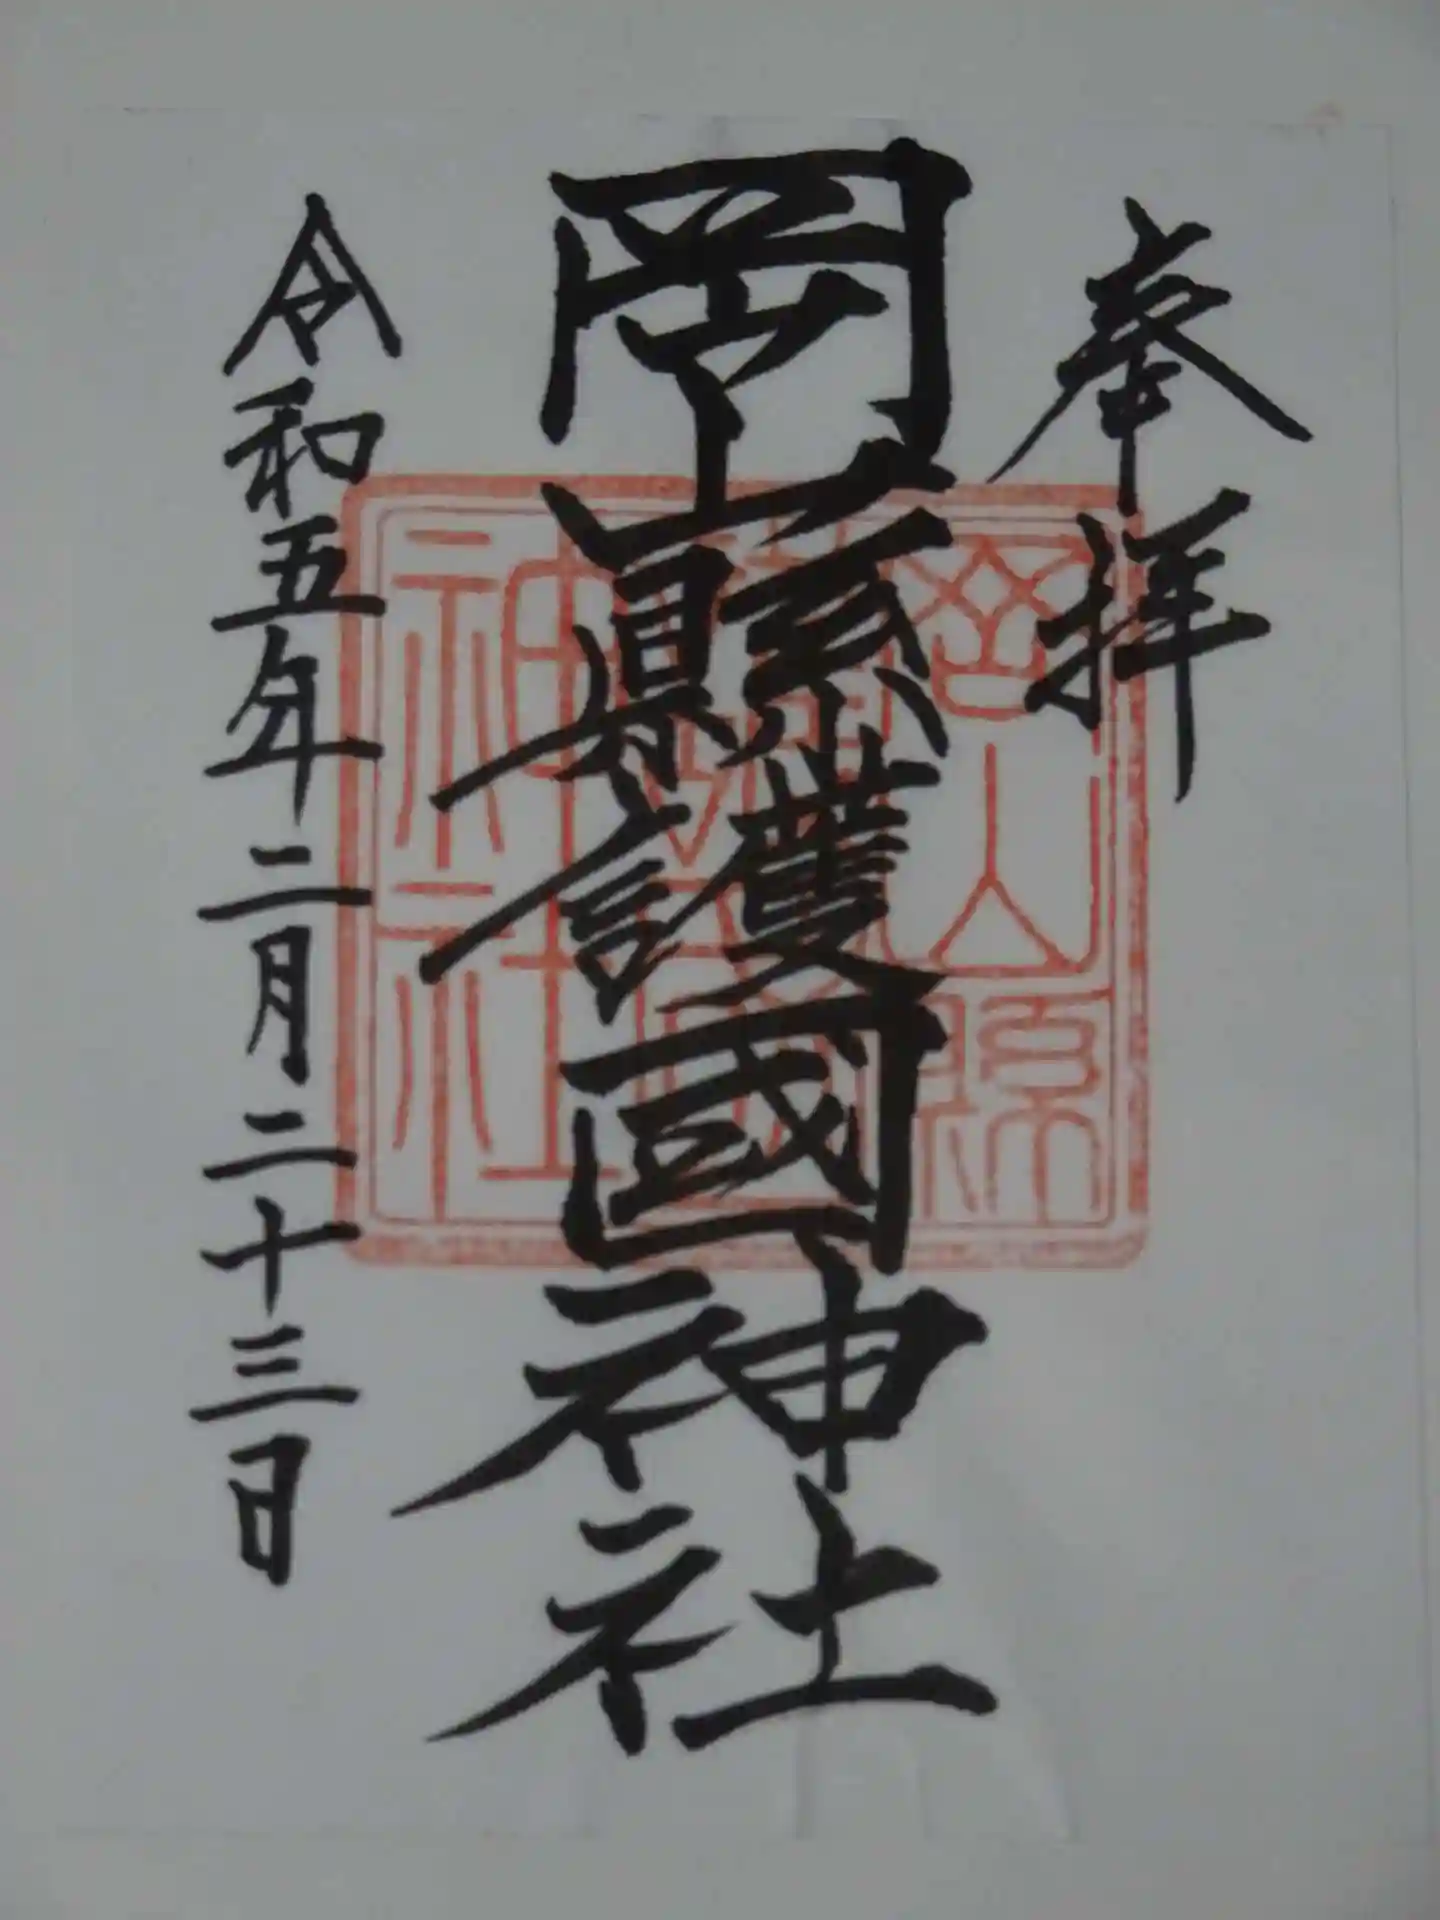 奉拝
岡山縣護國神社
令和五年二月二十三日
岡山縣
護國
神社